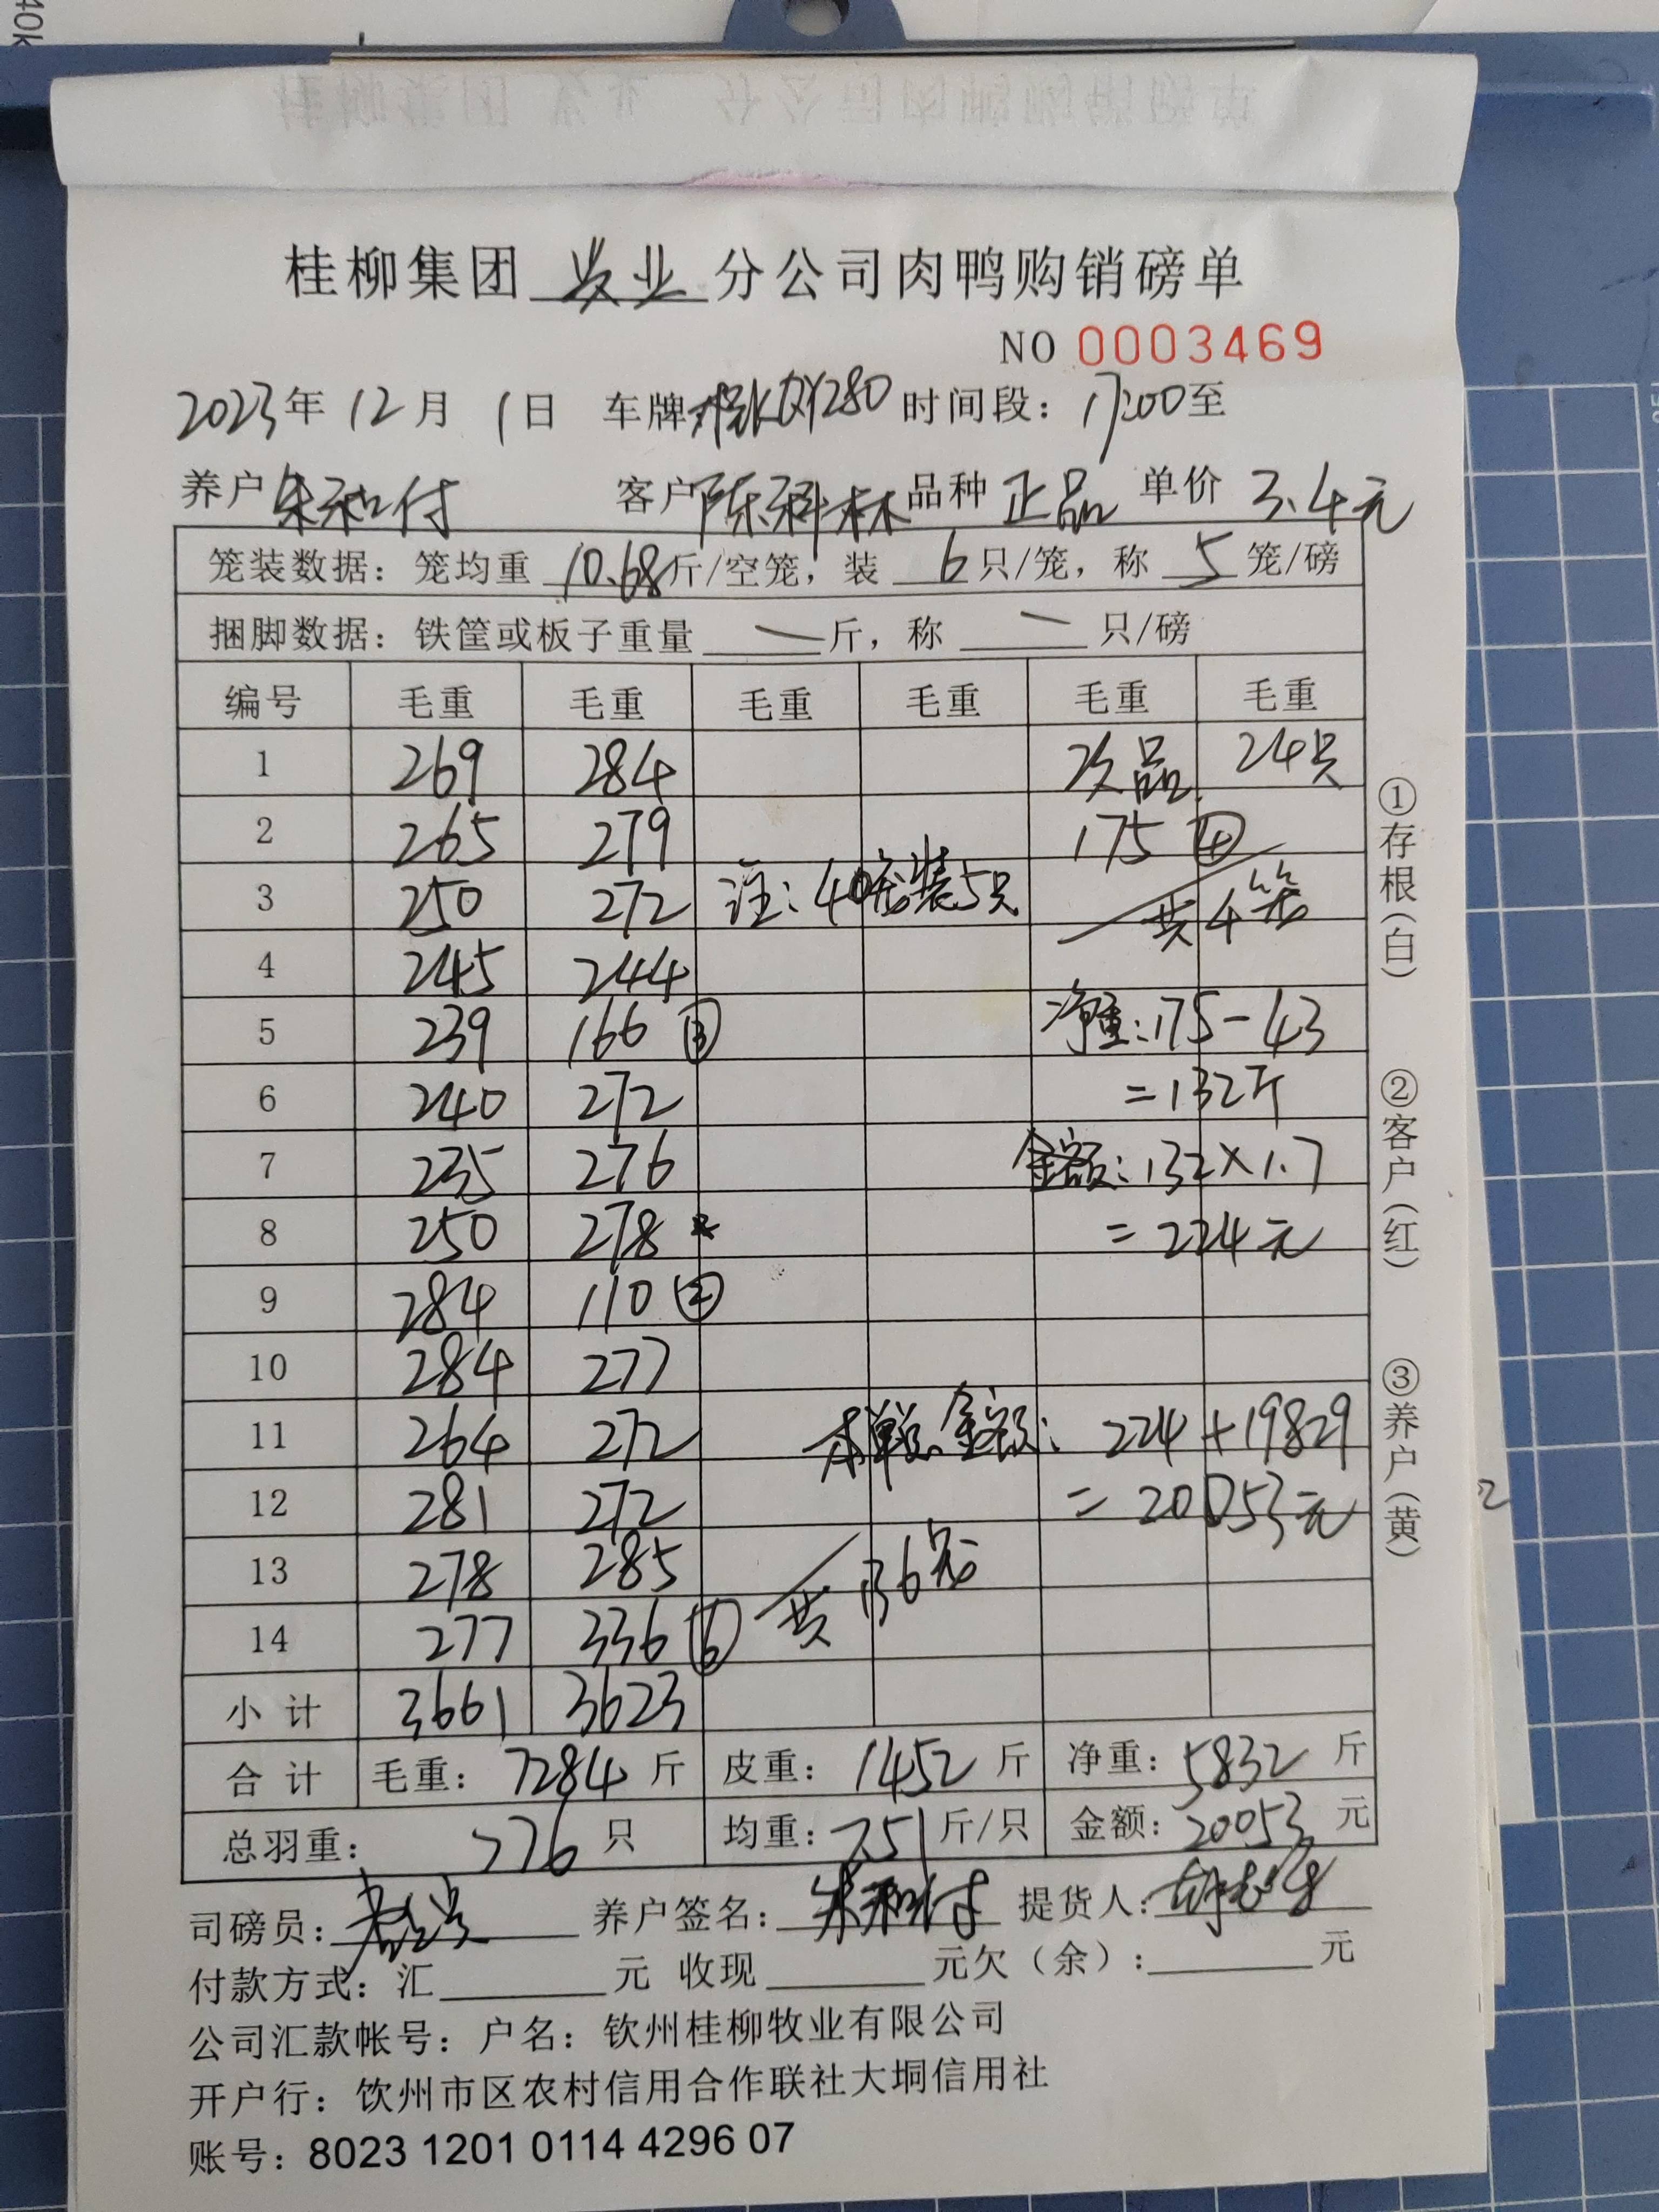 桂柳集团 农业 分公司肉鸭购销磅单
NO 0003469
2023年 12月 1日 车牌 QY280 时间段：17:00至
养户 朱和付 客户 陈科林 品种 正品 单价 3.4元
笼装数据：笼均重 10.68 斤/空笼，装 6 只/笼，称 5 笼/磅
捆脚数据：铁筐或板子重量 — 斤，称 — 只/磅
编号 毛重 毛重 毛重 毛重 毛重 毛重
1 269 284 次品 24只
2 265 279 175 ④
3 250 272 注：40笼装5只 共4笼
4 245 244
5 239 166 ③ 净重：175-43
6 240 272 =132斤
7 235 276 金额：132×1.7
8 250 278 =224元
9 284 110 ②
10 284 277
11 264 272 本单总金额：224+19829
12 281 272 =20053元
13 278 285 共136笼
14 277 336 ⑥
小计 3661 3623
合计 毛重：7284斤 皮重：1452斤 净重：5832斤
总羽重：776只 均重：7.51斤/只 金额：20053元
司磅员： 养户签名：朱和付 提货人：
付款方式：汇 元 收现 元欠（余）： 元
公司汇款帐号：户名：钦州桂柳牧业有限公司
开户行：钦州市区农村信用合作联社大垌信用社
账号：8023 1201 0114 4296 07
①存根（白）
②客户（红）
③养户（黄）